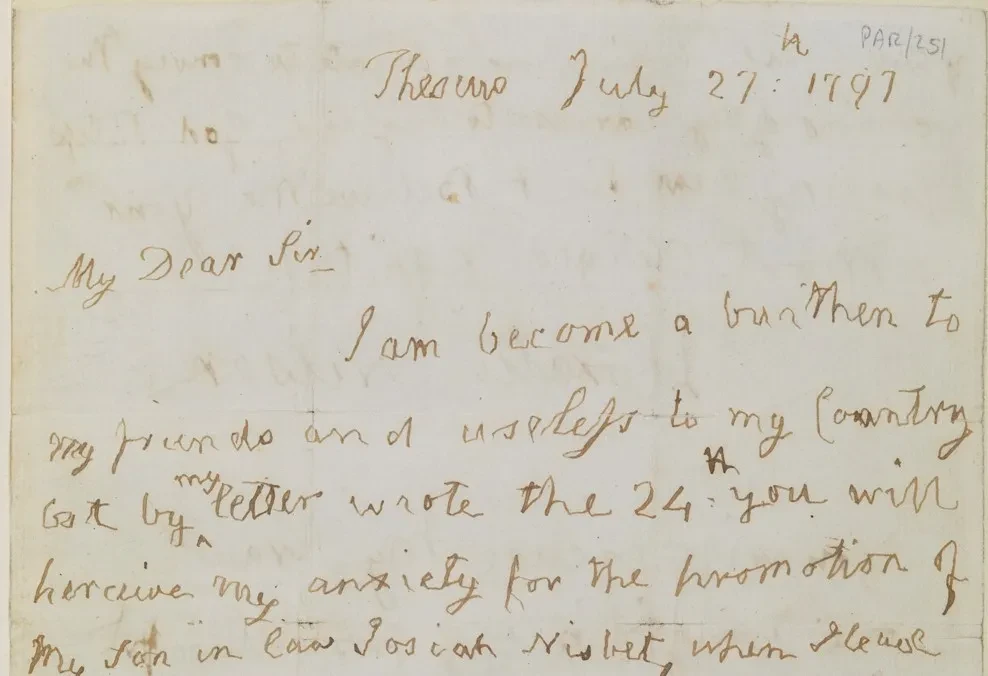 PAR/251
Theseus July 27:th 1797
My Dear Sir
I am become a burthen to
my friends and useless to my Country
but by my letter wrote the 24:th you will
perceive my anxiety for the promotion of
My Son in law Josiah Nisbet, when I leave